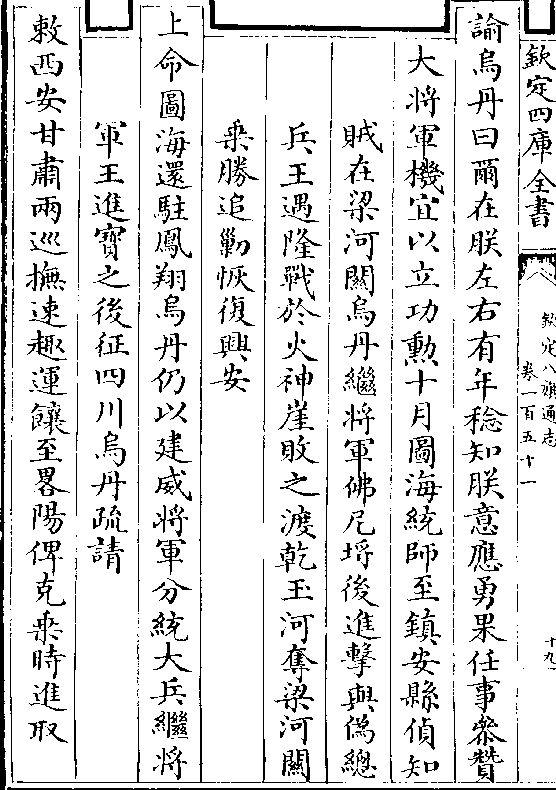 欽定四庫全書
欽定八旗通志
卷一百五十一
十九
諭烏丹曰爾在朕左右有年稔知朕意應勇果任事叅贊
大將軍機宜以立功勲十月圖海統師至鎮安縣偵知
賊在梁河關烏丹繼將軍佛尼埒後進擊與偽總
兵王遇隆戰於火神崖敗之渡乾玉河奪梁河關
乗勝追勦恢復興安
上命圖海還駐鳳翔烏丹仍以建威將軍分統大兵繼將
軍王進寳之後征四川烏丹疏請
敕西安甘肅兩巡撫速趣運饟至畧陽俾克乗時進取